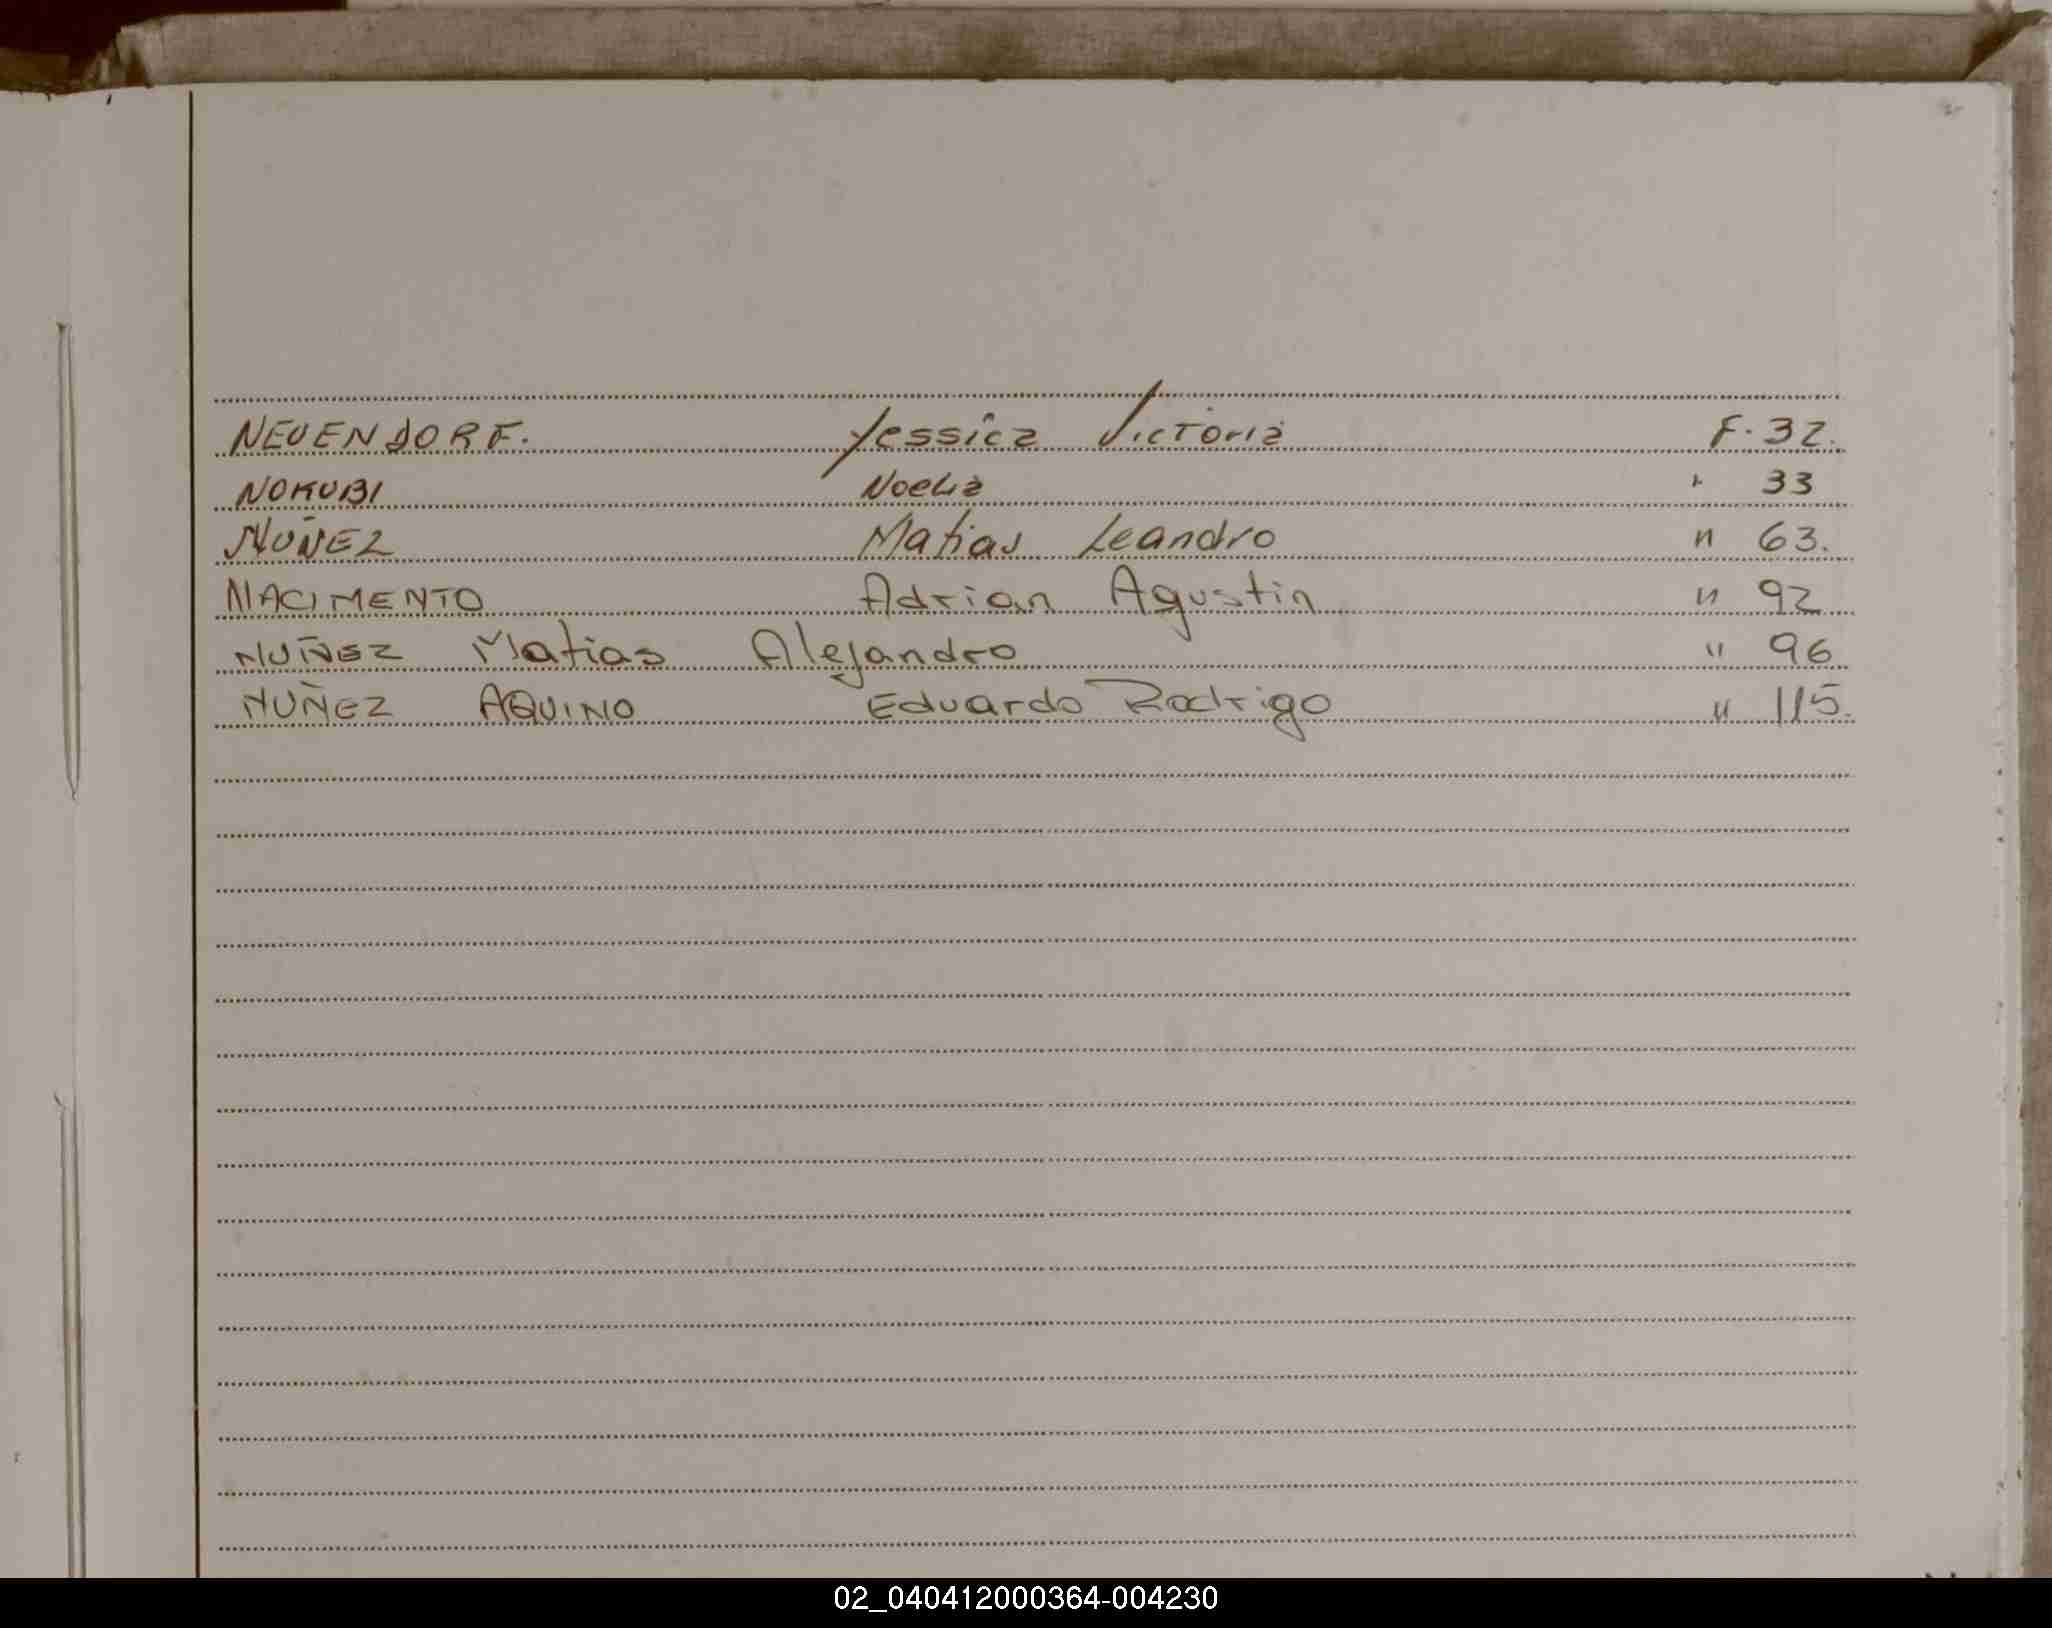 NEUENDORF. Yessica Victoria F. 32.
NOKUBI Noelia " 33
NUÑEZ Matias Leandro " 63.
NACIMENTO Adrian Agustin " 92
NUÑEZ Matias Alejandro " 96
NUÑEZ AQUINO Eduardo Rodrigo " 115.
02_040412000364-004230